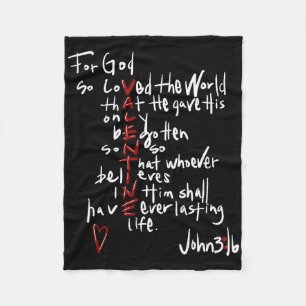 For God
so loVed the World
thAt He gave His
onLy
bEgotten
soN so
That whoever
belIeves
iN Him shall
havE everlasting
life.
John3:16